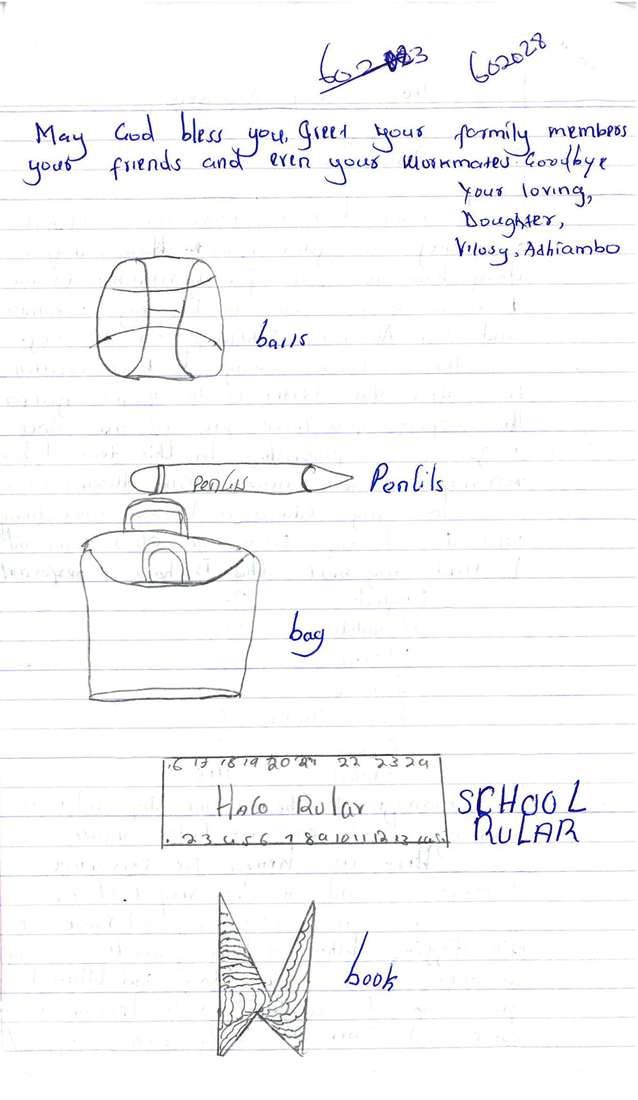 602028
May God bless you. Greet your formily members
your friends and even your workmates. Goodbye
Your loving,
Doughter,
Vilosy, Adhiambo
balls
Pencils
Pencils
bag
16 17 18 19 20 21 22 23 24
Halo Rular
SCHOOL
RULAR
2 3 4 5 6 7 8 9 10 11 12 13 14 15
book